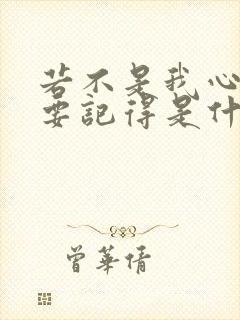 若不是我心
要記得是什
曾華倩